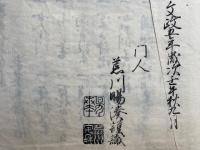 文政五年歳次壬午秋九月
門人
荒川賜奏謹識